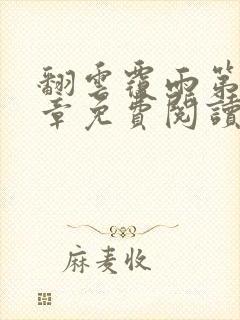 翻雲覆雨第
章免費閱讀
麻麦收